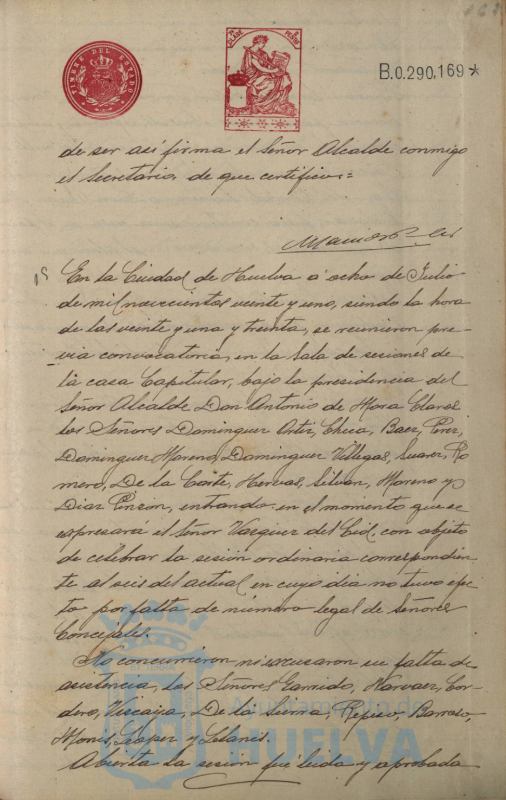 TIMBRE DEL ESTADO
B.0.290,169*
de ser asi firma el Señor Alcalde conmigo
el Secretario, de que certifico=
En la Ciudad de Huelva a ocho de Julio
de mil novecientos veinte y uno, siendo la hora
de las veinte y una y treinta, se reunieron pre-
via convocatoria, en la Sala de sesiones de
la casa Capitular, bajo la presidencia del
Señor Alcalde Don Antonio de Mora Claros
los Señores Dominguez Ortiz, Checa, Baez, Perez,
Dominguez Moreno, Dominguez Villegas, Suarez, Ro-
mero, De la Corte, Hervas, Silvan, Moreno y
Diaz Pinzon, entrando en el momento que se
expresará el Señor Vazquez del Cid, con objeto
de celebrar la sesión ordinaria correspondien-
te al seis del actual en cuyo dia no tuvo efec-
to por falta de número legal de Señores
Concejales.
No concurrieron ni excusaron su falta de
asistencia los Señores Garrido, Narvaez, Cor-
dero, Vizcaino, De la Sierra, Repiso, Barroso,
Mones, Lopez y
Abierta la sesión fue leida y aprobada
Ayuntamiento de
HUELVA